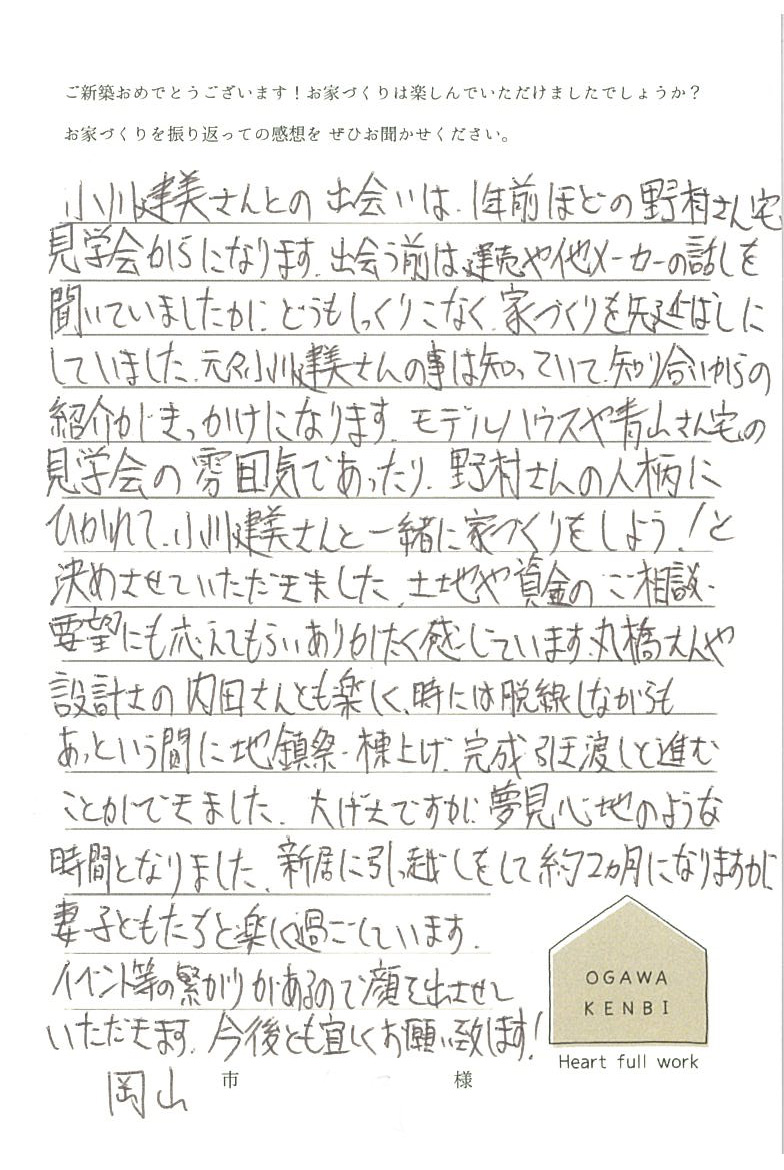 ご新築おめでとうございます！お家づくりは楽しんでいただけましたでしょうか？
お家づくりを振り返っての感想を ぜひお聞かせください。
小川建美さんとの出会いは、1年前ほどの野村さん宅
見学会からになります。出会う前は、建売や他メーカーの話しを
聞いていましたが、どうもしっくりこなく、家づくりを先延ばしに
していました。元々小川建美さんの事は知っていて、知り合いからの
紹介がきっかけになります。モデルハウスや青山さん宅の
見学会の雰囲気であったり、野村さんの人柄に
ひかれて、小川建美さんと一緒に家づくりをしよう！と
決めさせていただきました。土地や資金のご相談・
要望にも応えてもらいありがたく感じています。丸橋さんや
設計士の内田さんとも楽しく、時には脱線しながらも
あっという間に地鎮祭・棟上げ、完成引き渡しと進む
ことができました。大げさですが、夢見心地のような
時間となりました。新居に引っ越しをして約2ヵ月になりますが
妻子どもたちと楽しく過ごしています。
イベント等の繋がりがあるので顔を出させて
いただきます。今後とも宜しくお願い致します！
岡山 市 様
OGAWA
KENBI
Heart full work